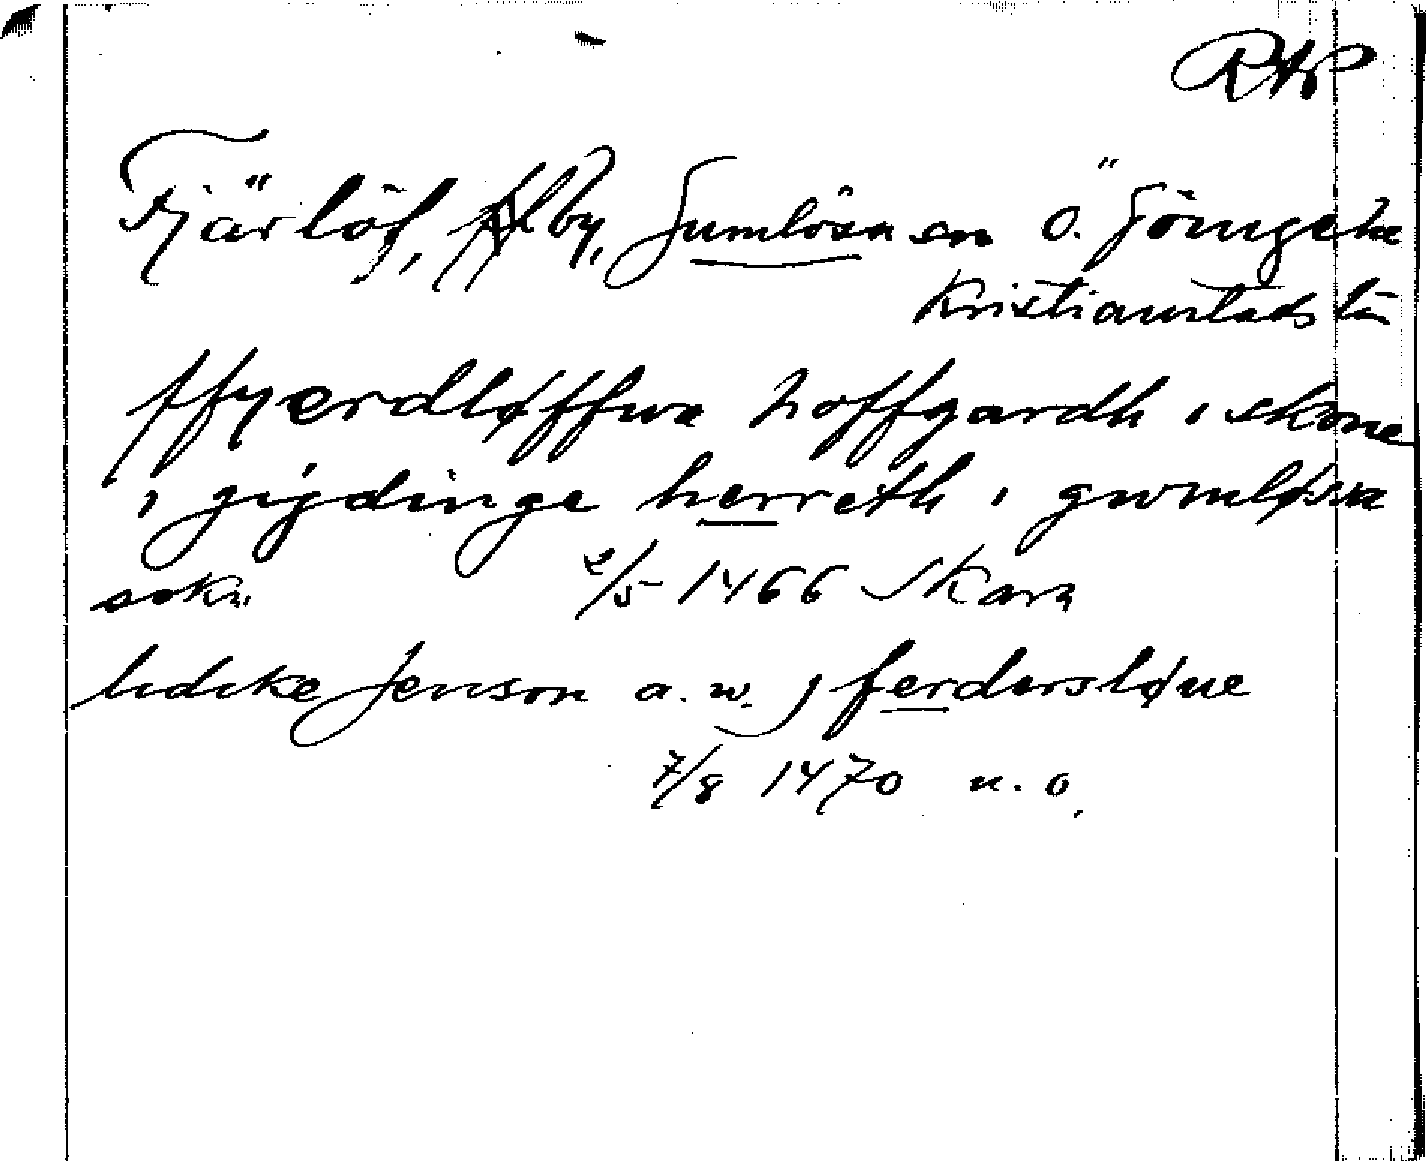 RAP
Fjärlöf, by, Gumlösa sn Ö. Göinge hd
Kristianstads län
ffyerdløffwa hoffgardh i skone
i gijdinge herreth i gwmløsa
sokn 2/5 1466 Skara
lydeke Jenson a. w. j ferdersløue
7/8 1470 u. o.